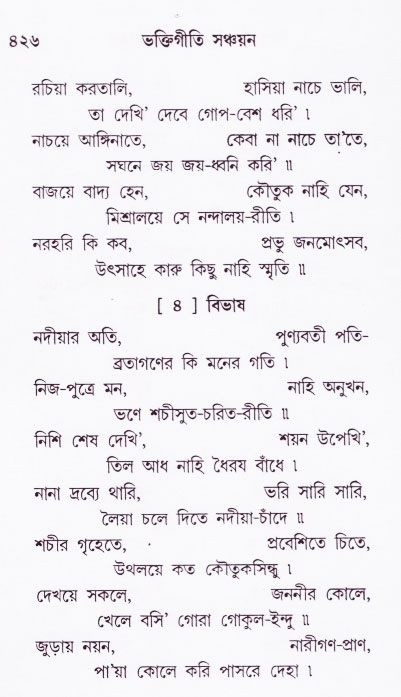 ৪২৬ ভক্তিগীতি সঞ্চয়ন
রচিয়া করতালি, হাসিয়া নাচে ভালি,
তা দেখি’ দেবে গোপ-বেশ ধরি’ ৷
নাচয়ে আঙ্গিনাতে, কেবা না নাচে তা’তে,
সঘনে জয় জয়-ধ্বনি করি’ ৷৷
বাজয়ে বাদ্য হেন, কৌতুক নাহি যেন,
মিশ্রালয়ে সে নন্দালয়-রীতি ৷
নরহরি কি কব, প্রভু জনমোৎসব,
উৎসাহে কারু কিছু নাহি স্মৃতি ৷৷
[ ৪ ] বিভাষ
নদীয়ার অতি, পুণ্যবতী পতি-
ব্রতাগণের কি মনের গতি ৷
নিজ-পুত্রে মন, নাহি অনুখন,
ভণে শচীসুত-চরিত-রীতি ৷৷
নিশি শেষ দেখি’, শয়ন উপেখি’,
তিল আধ নাহি ধৈরয বাঁধে ৷
নানা দ্রব্যে থারি, ভরি সারি সারি,
লৈয়া চলে দিতে নদীয়া-চাঁদে ৷৷
শচীর গৃহেতে, প্রবেশিতে চিতে,
উথলয়ে কত কৌতুকসিন্ধু ৷
দেখয়ে সকলে, জননীর কোলে,
খেলে বসি’ গোরা গোকুল-ইন্দু ৷৷
জুড়ায় নয়ন, নারীগণ-প্রাণ,
পা’য়া কোলে করি পাসরে দেহা ৷